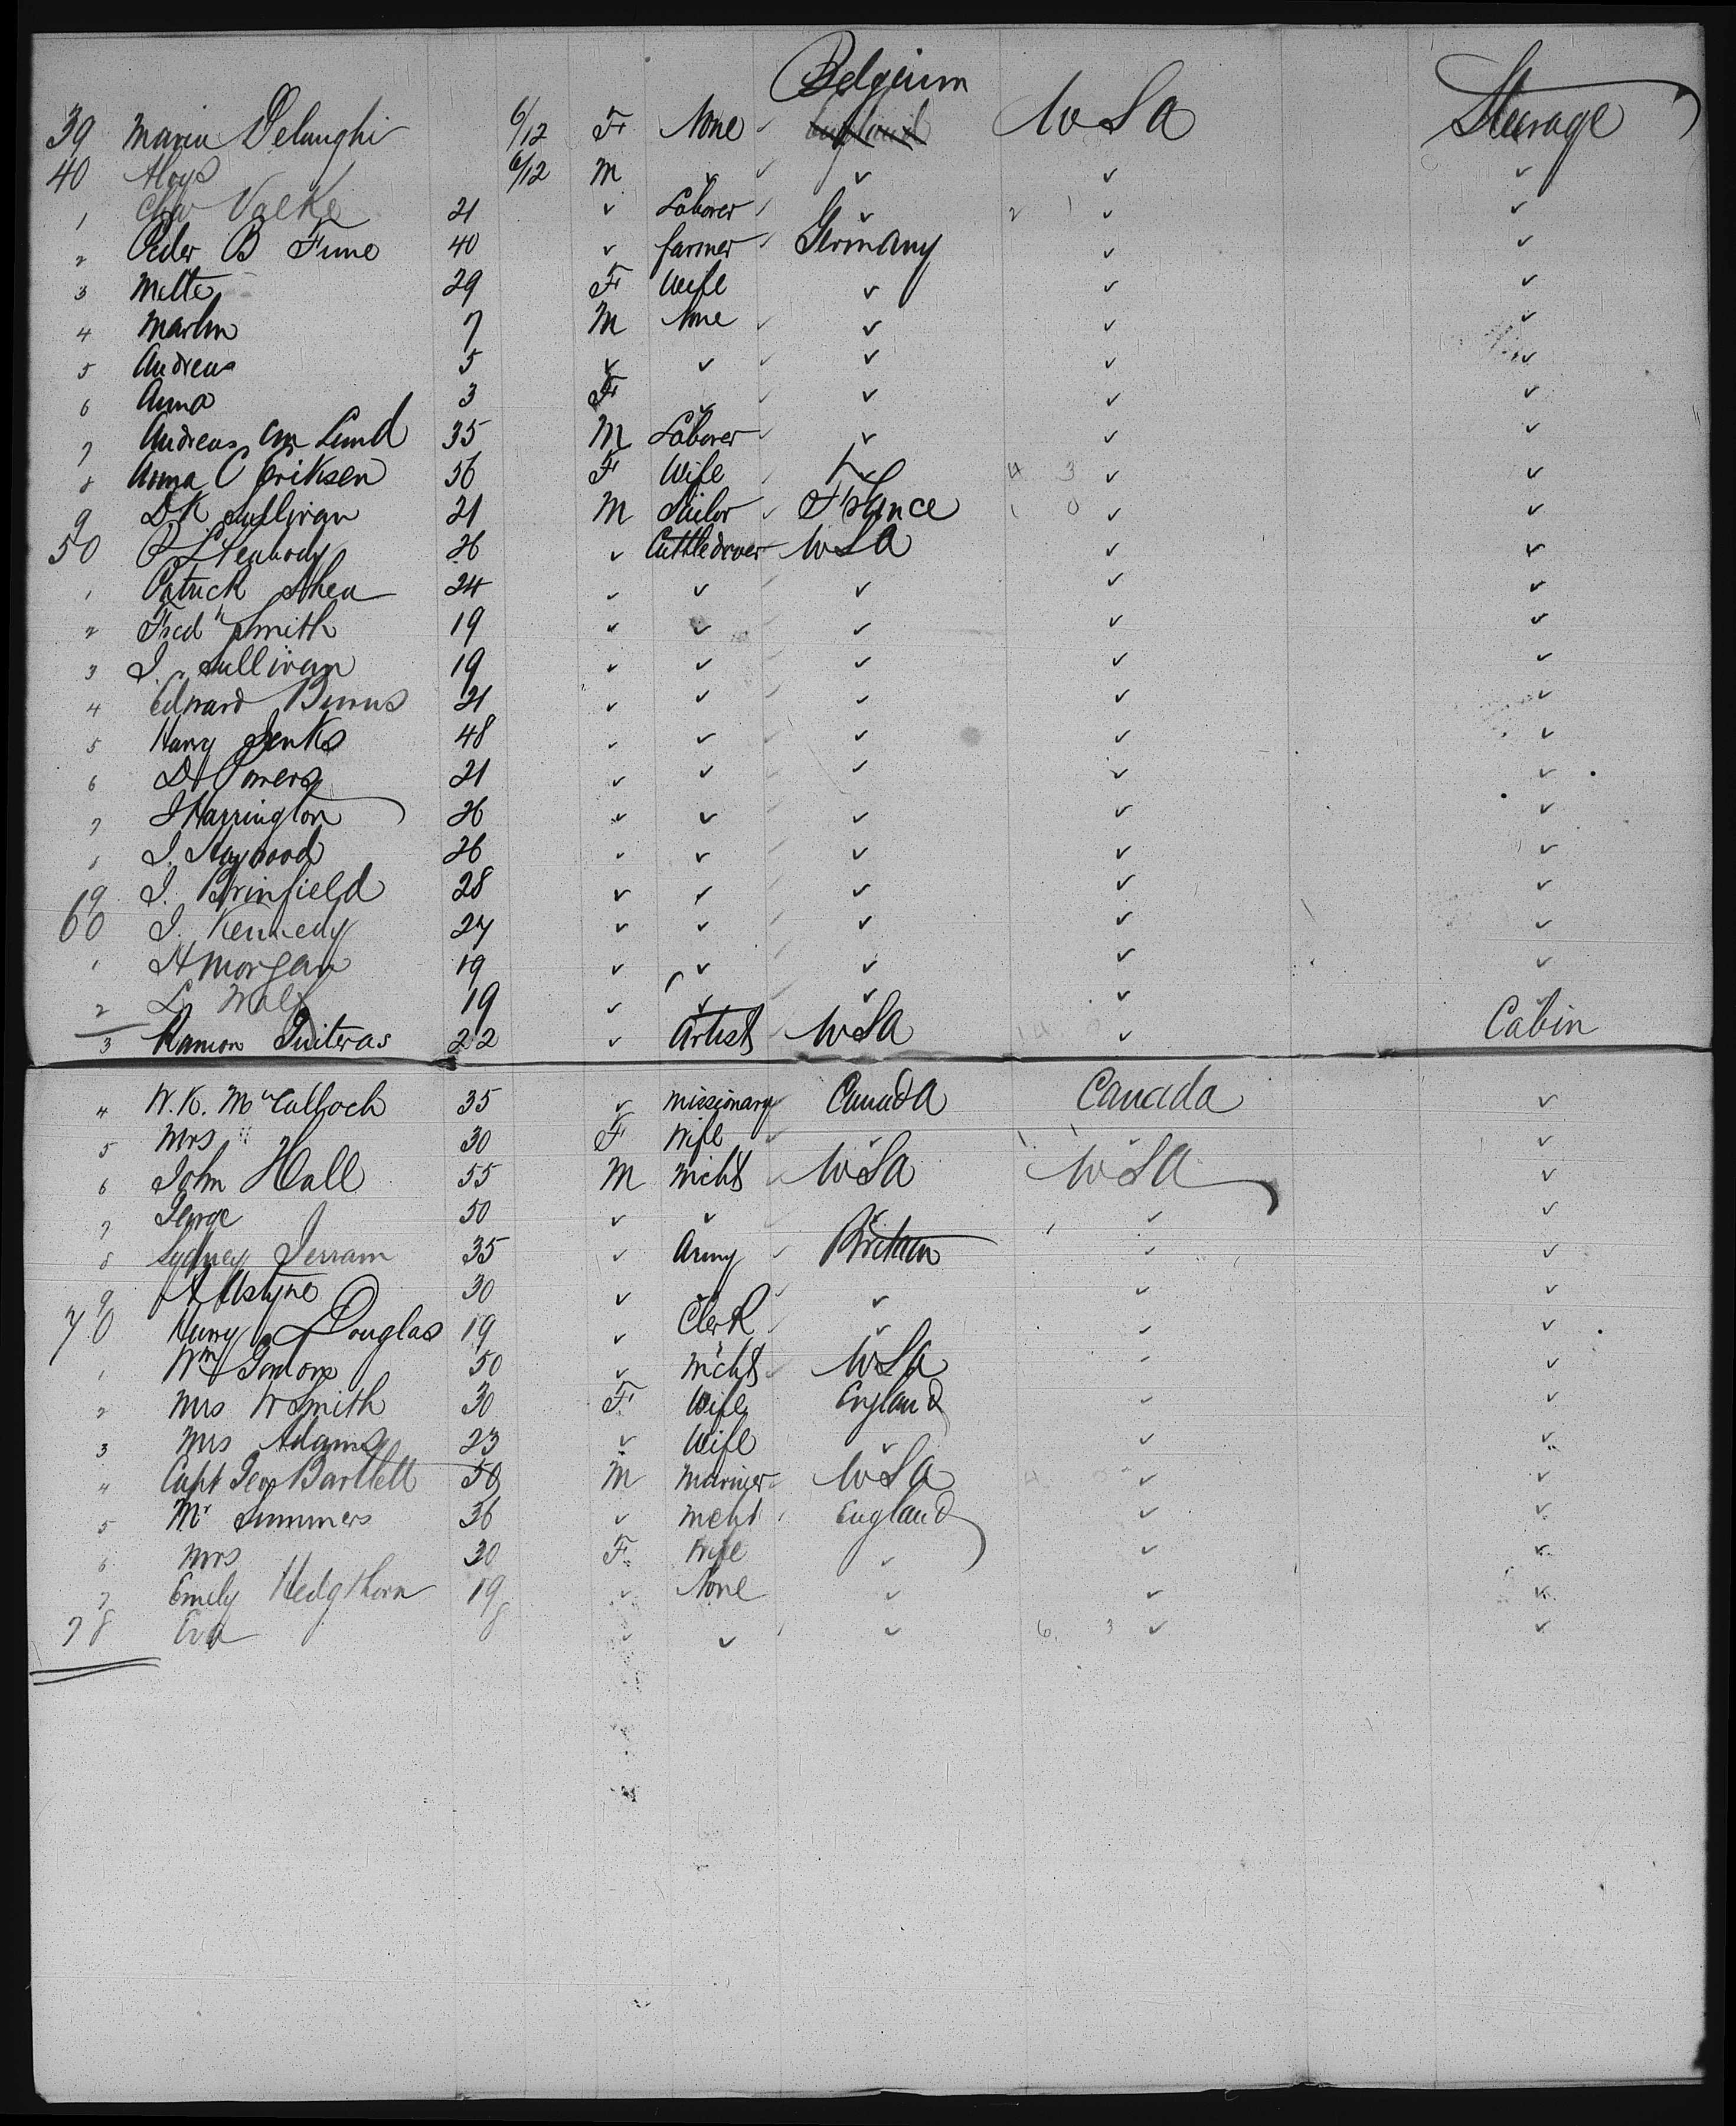 Belgium
39 Maria Delanghi 6/12 F None ✓ England U S A Steerage
40 Aloys 6/12 M ✓ ✓ ✓ ✓ ✓
1 Valke 21 ✓ Laborer ✓ ✓ 2 1 ✓ ✓
2 Peder B Fune 40 ✓ farmer ✓ Germany ✓ ✓
3 Mette 29 F Wife ✓ ✓ ✓
4 Martin 7 M None ✓ ✓ ✓ ✓
5 Andreas 5 ✓ ✓ ✓ ✓ ✓ ✓
6 Anna 3 F ✓ ✓ ✓ ✓ ✓
7 Andreas Lund 35 M Laborer ✓ ✓ ✓ ✓
8 Anna C Eriksen 56 F Wife ✓ ✓ 4 3 ✓ ✓
9 D K Sullivan 21 M Sailor ✓ France 1 0 ✓ ✓
50 P L Peabody 26 ✓ Cattledrover U S A ✓ ✓
1 Patrick Shea 24 ✓ ✓ ✓ ✓ ✓ ✓
2 Fredk Smith 19 ✓ ✓ ✓ ✓ ✓ ✓
3 J. Sullivan 19 ✓ ✓ ✓ ✓ ✓ ✓
4 Edward Burns 21 ✓ ✓ ✓ ✓ ✓ ✓
5 Harry Jenks 48 ✓ ✓ ✓ ✓ ✓ ✓
6 D Powers 21 ✓ ✓ ✓ ✓ ✓ ✓
7 J Harrington 26 ✓ ✓ ✓ ✓ ✓ ✓
8 J. Haywood 26 ✓ ✓ ✓ ✓ ✓ ✓
9 J. Brinfield 28 ✓ ✓ ✓ ✓ ✓ ✓
60 J. Kennedy 27 ✓ ✓ ✓ ✓ ✓ ✓
1 H Morgan 19 ✓ ✓ ✓ ✓ ✓ ✓
2 L. Wolf 19 ✓ ✓ ✓ ✓ ✓
3 Ramon Guiteras 22 ✓ Artist ✓ U S A ✓ Cabin
4 W. K. McCulloch 35 ✓ Missionary Canada Canada ✓
5 Mrs " 30 F Wife ✓ ✓ 1 1 ✓ ✓
6 John Hall 55 M Mcht ✓ U S A U S A ✓
7 George 50 ✓ ✓ ✓ ✓ ✓ ✓
8 Sydney Jerram 35 ✓ Army ✓ Britain ✓ ✓
9 A Alstyne 30 ✓ ✓ ✓ ✓ ✓
70 Henry Douglas 19 ✓ Clerk ✓ ✓ ✓ ✓
1 Wm Gordon 50 ✓ Mcht ✓ U S A ✓ ✓
2 Mrs W Smith 30 F Wife England ✓ ✓
3 Mrs Adams 23 ✓ Wife ✓ ✓ ✓
4 Capt Geo Bartlett 50 M Mariner U S A 4 ✓ ✓
5 Mr Summers 36 ✓ Mcht England ✓ ✓
6 Mrs 30 F Wife ✓ ✓ ✓
7 Emily Hedgthorn 19 ✓ None ✓ ✓ ✓
78 Eva 8 ✓ ✓ ✓ 6 3 ✓ ✓